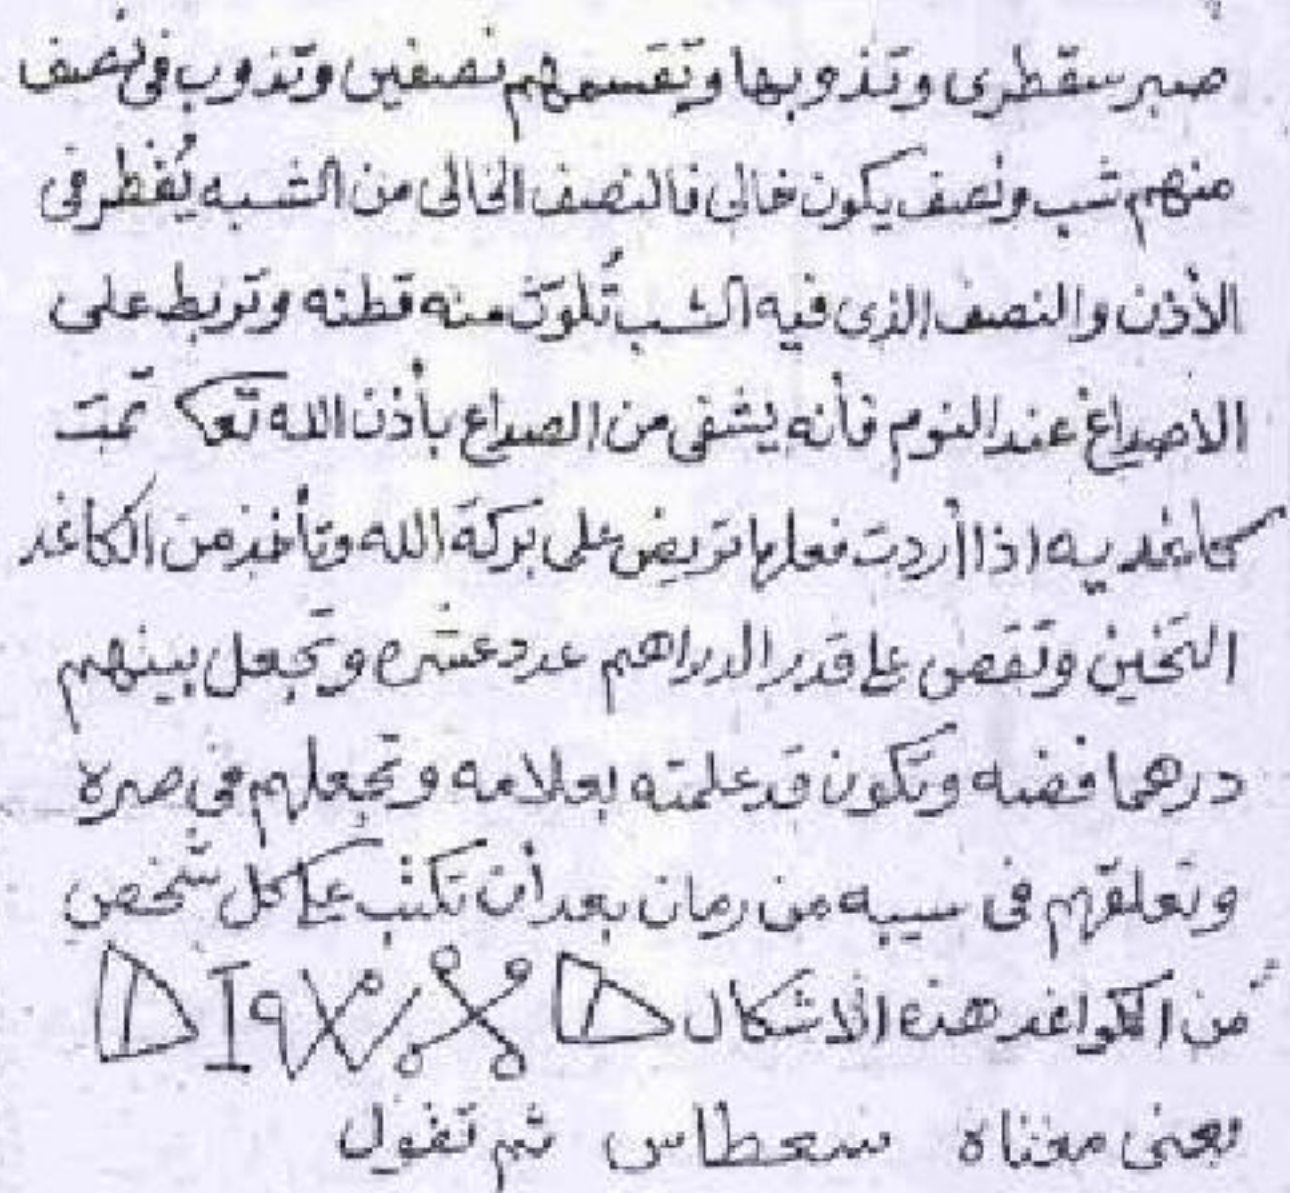 صبر سقطرى وتذوبها وتقسمهم نصفين وتذوب فى نصف
منهم شب ونصف يكون خالى فالنصف الخالى من الشبه يُقطر فى
الأذن والنصف الذى فيه الشب تُلوث منه قطنه وتربط على
الاصداغ عند النوم فأنه يشفى من الصداع بأذن الله تعا تمت
كاغديه اذا أردت فعلها تريض على بركة الله وتأخذ من الكاغد
التخين وتقص على قدر الدراهم عدد عشره وتجعل بينهم
درهما فضه وتكون قد علمته بعلامه وتجعلهم فى صره
وتعلقهم فى سيبه من رمان بعد أن تكتب على كل شخص
من الكواغد هذه الاشكال
يعنى معناه سعطاس ثم تقول